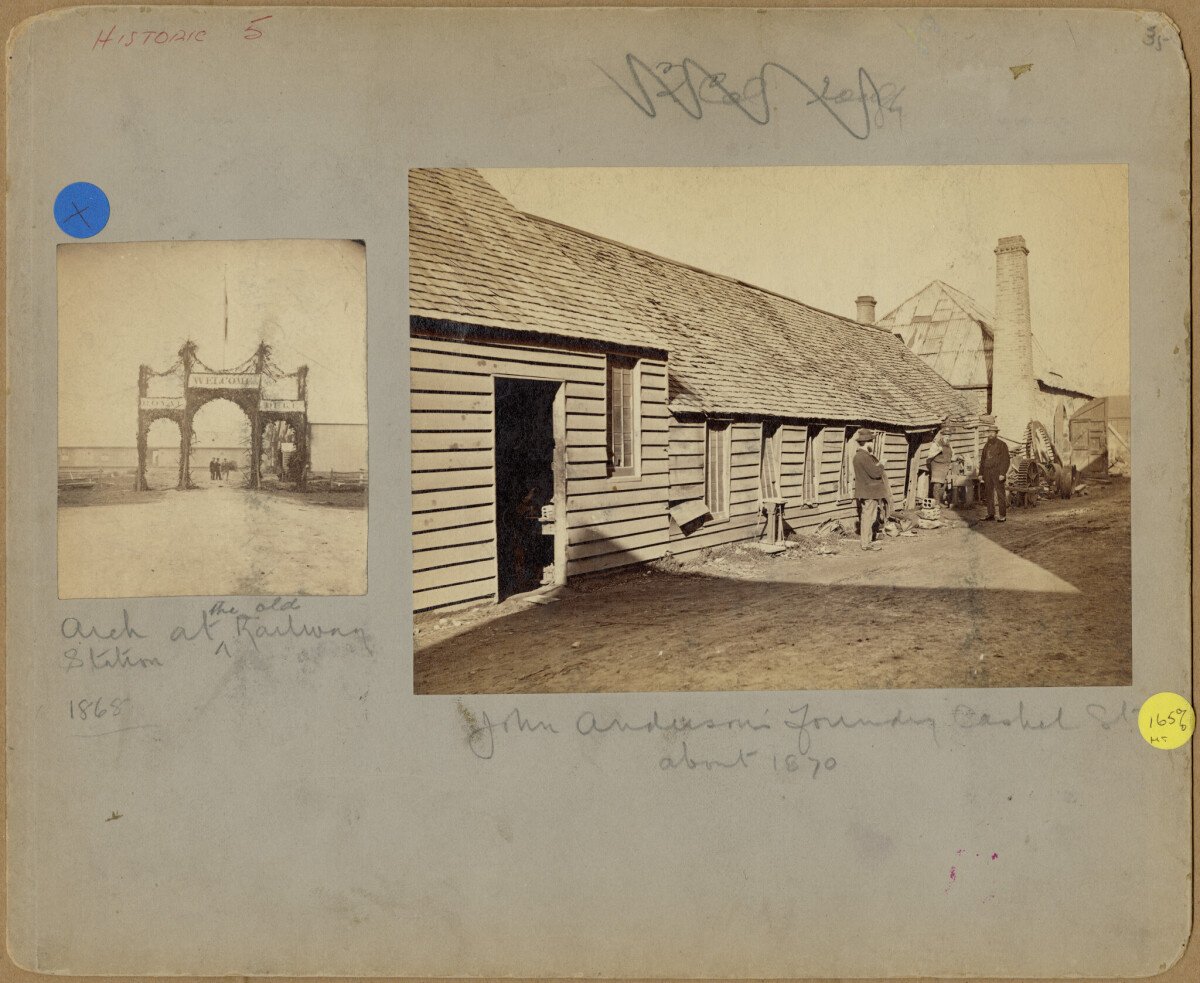 HISTORIC 5
35
WELCOME
ROYAL DUKE
Arch at the old Railway
Station
1868
John Anderson's Foundry Cashel St
about 1870
165